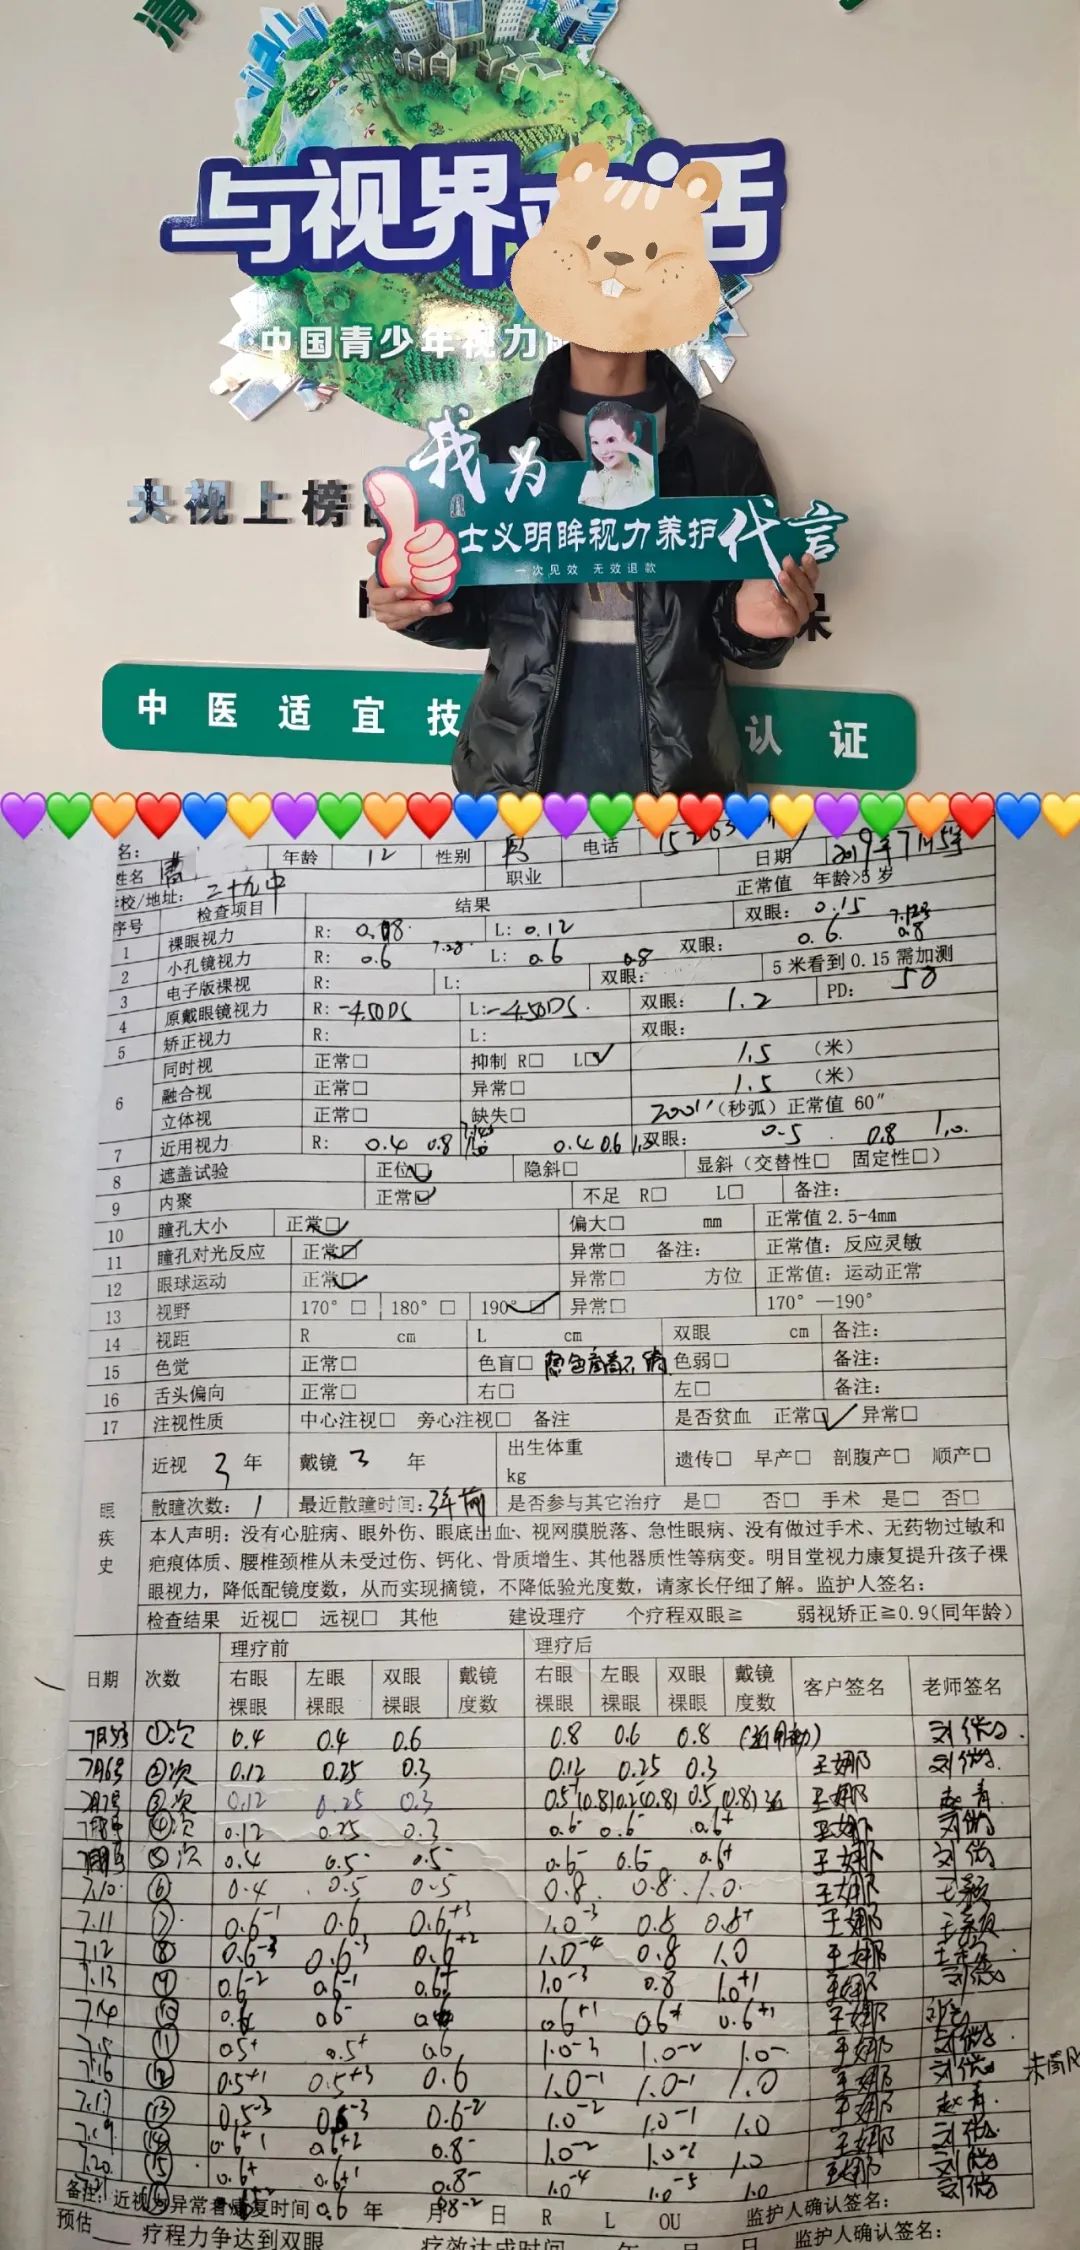 清
与视界对话
中国青少年视力
牌
央视上榜品
我为
士义明眸视力养护代言
一次见效 无效退款
保
中医适宜技
认证
名:
姓名
年龄 12 性别 男 电话
日期 2019年7月5号
学校/地址: 二十九中 职业
序号 检查项目 结果 正常值 年龄>5岁
1 裸眼视力 R: 0.08 L: 0.12 双眼: 0.15
2 小孔镜视力 R: 0.6 7.28 L: 0.6 0.8 双眼: 0.6 0.8
3 电子版裸视 R: L: 双眼: 5米看到0.15需加测
4 原戴眼镜视力 R: -4.50DS L: -4.50DS 双眼: 1.2 PD: 58
5 矫正视力 R: L: 双眼:
6 同时视 正常□ 抑制 R□ L☑ 1.5 (米)
融合视 正常□ 异常□ 1.5 (米)
立体视 正常□ 缺失□ 200" (秒弧) 正常值 60"
7 近用视力 R: 0.4 0.8 0.4 0.6 双眼: 0.5 0.8 1.0
8 遮盖试验 正位☑ 隐斜□ 显斜(交替性□ 固定性□)
9 内聚 正常☑ 不足 R□ L□ 备注:
10 瞳孔大小 正常☑ 偏大□ mm 正常值2.5-4mm
11 瞳孔对光反应 正常☑ 异常□ 备注: 正常值: 反应灵敏
12 眼球运动 正常☑ 异常□ 方位 正常值: 运动正常
13 视野 170°□ 180°□ 190°☑ 异常□ 170°—190°
14 视距 R cm L cm 双眼 cm 备注:
15 色觉 正常□ 色盲□ 色弱□ 备注:
16 舌头偏向 正常□ 右□ 左□ 备注:
17 注视性质 中心注视□ 旁心注视□ 备注 是否贫血 正常☑ 异常□
眼疾史
近视 3 年 戴镜 3 年 出生体重 kg 遗传□ 早产□ 剖腹产□ 顺产□
散瞳次数: 1 最近散瞳时间: 3年前 是否参与其它治疗 是□ 否□ 手术 是□ 否□
本人声明: 没有心脏病、眼外伤、眼底出血、视网膜脱落、急性眼病、没有做过手术、无药物过敏和
疤痕体质、腰椎颈椎从未受过伤、钙化、骨质增生、其他器质性等病变。明目堂视力康复提升孩子裸
眼视力,降低配镜度数,从而实现摘镜,不降低验光度数,请家长仔细了解。监护人签名:
检查结果 近视□ 远视□ 其他 建设理疗 个疗程双眼≧ 弱视矫正≧0.9(同年龄)
日期 次数 理疗前 理疗后 客户签名 老师签名
右眼裸眼 左眼裸眼 双眼裸眼 戴镜度数 右眼裸眼 左眼裸眼 双眼裸眼 戴镜度数
7月5号 ①次 0.4 0.4 0.6 0.8 0.6 0.8
7月6号 ②次 0.12 0.25 0.3 0.12 0.25 0.3 王娜
7月7号 ③次 0.12 0.25 0.3 0.5 (0.8) 0.25 (0.8) 0.5 (0.8) 王娜 赵青
④次 0.12 0.25 0.3 0.6⁻ 0.6⁻ 0.6⁺ 王娜
⑤次 0.4 0.5⁻ 0.5⁻ 0.6⁻ 0.6⁻ 0.6⁺ 王娜
7.10 ⑥ 0.4 0.5 0.5 0.8 0.8 1.0 王娜
7.11 ⑦ 0.6⁻¹ 0.6 0.6⁺³ 1.0⁻³ 0.8 0.8⁺ 王娜
7.12 ⑧ 0.6⁻³ 0.6⁻³ 0.6⁺² 1.0⁻⁴ 0.8 1.0 王娜
7.13 ⑨ 0.6⁻² 0.6⁻¹ 0.6⁺ 1.0⁻³ 0.8 1.0⁺¹ 王娜
7.14 ⑩ 0.6 0.6⁻ 0.6⁺¹ 0.6⁺ 0.6⁺¹ 王娜
7.15 ⑪ 0.5⁺ 0.5⁺ 0.6 1.0⁻³ 1.0⁻² 1.0⁻ 王娜
7.16 ⑫ 0.5⁺¹ 0.5⁺³ 0.6 1.0⁻¹ 1.0⁻¹ 1.0 王娜
7.17 ⑬ 0.5⁻³ 0.6⁻³ 0.6⁻² 1.0⁻² 1.0⁻¹ 1.0 王娜 赵青
7.19 ⑭ 0.6⁺¹ 0.6⁺² 0.8⁻ 1.0⁻² 1.0 王娜
7.20 ⑮ 0.6⁺ 0.6⁺¹ 0.8⁻ 1.0⁻⁴ 1.0⁻⁵ 1.0 王娜
7.21 0.6 0.8⁻²
备注: 近视与异常者康复时间 年 月 日 R L OU 监护人确认签名:
预估 疗程力争达到双眼 疗效达成时间 年 月 日 监护人确认签名: